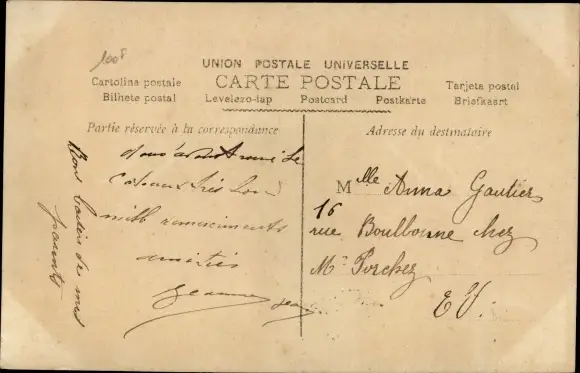 100f
UNION POSTALE UNIVERSELLE
CARTE POSTALE
Cartolina postale
Tarjeta postal
Bilhete postal Levelezo-lap Postcard Postkarte Briefkaart
Partie réservée à la correspondance
Adresse du destinataire
très bon
mille remerciments
amitiés
Jeanne
Bons baisers de mes
parents
Mlle Anna Gautier
16
rue Boulbonne chez
Mr Porchez
EV.